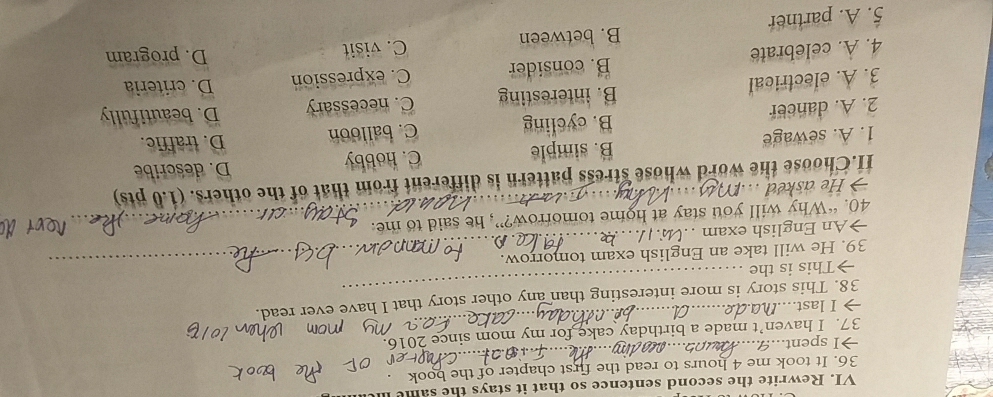 VI. Rewrite the second sentence so that it stays the same
36. It took me 4 hours to read the first chapter of the book.
→I spent...4 hours reading the first chapter OF the book
37. I haven't made a birthday cake for my mom since 2016.
→ I last....made....a....birthday....cake....for my mom when 2016
38. This story is more interesting than any other story that I have ever read.
→This is the
39. He will take an English exam tomorrow.
→An English exam ..will be taken tomorrow by he
40. "Why will you stay at home tomorrow?", he said to me.
→ He asked ...me...why I would stay at home the next
II.Choose the word whose stress pattern is different from that of the others. (1.0 pts)
1. A. sewage B. simple C. hobby D. describe
2. A. dancer B. cycling C. balloon D. traffic.
3. A. electrical B. interesting C. necessary D. beautifully
4. A. celebrate B. consider C. expression D. criteria
5. A. partner B. between C. visit D. program